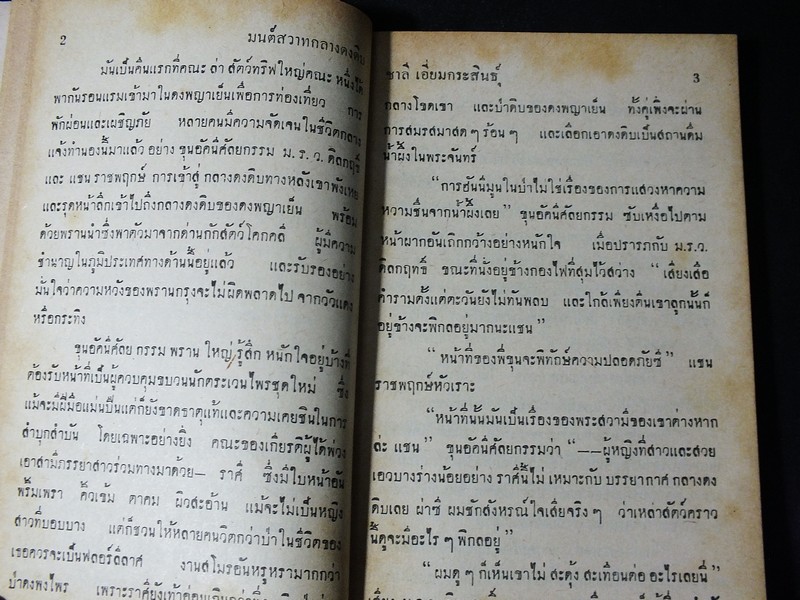 2
มนต์สวาทกลางดงดิบ
มันเป็นคืนแรกที่คณะ ล่า สัตว์ทริฟใหญ่คณะ หนึ่งได้
พากันรอนแรมเข้ามาในดงพญาเย็นเพื่อการท่องเที่ยว การ
พักผ่อนและเผชิญภัย หลายคนมีความจัดเจนในชีวิตกลาง
แจ้งทำนองนี้มาแล้ว อย่าง ขุนอัคนีศัลยกรรม ม. ร. ว. ดิลกฤทธิ์
และ แชน ราชพฤกษ์ การเข้าสู่ กลางดงดิบทางหลังเขาพังเหย
และรุดหน้าลึกเข้าไปถึงกลางดงดิบของดงพญาเย็น พร้อม
ด้วยพรานนำซึ่งพาตัวมาจากด่านกักสัตว์โคกคลี ผู้มีความ
ชำนาญในภูมิประเทศทางด้านนี้อยู่แล้ว และรับรองอย่าง
มั่นใจว่าความหวังของพรานกรุงจะไม่ผิดพลาดไป จากวัวแดง
หรือกระทิง
ขุนอัคนีศัลย กรรม พราน ใหญ่ รู้สึก หนักใจอยู่บ้างที่
ต้องรับหน้าที่เป็นผู้ควบคุมขบวนนักตระเวนไพรชุดใหม่ ซึ่ง
แม้จะมีฝีมือแม่นปืนแต่ก็ยังขาดธาตุแท้และความเคยชินในการ
ลำบุกลำบัน โดยเฉพาะอย่างยิ่ง คณะของเกียรติผู้ได้พ่วง
เอาสามีภรรยาสาวร่วมทางมาด้วย— ราศี ซึ่งมีใบหน้าอัน
พริ้มเพรา คิ้วเข้ม ตาคม ผิวสะอ้าน แม้จะไม่เป็นหญิง
สาวที่บอบบาง แต่ก็ชวนให้หลายคนวิตกว่าป่าในชีวิตของ
เธอควรจะเป็นฟลอร์ลีลาศ งานสโมรอันหรูหรามากกว่า
ป่าดงพงไพร เพราะราศียังเท้าอ่อนเกินกว่า
ชาลี เอี่ยมกระสินธุ์
3
กลางโขดเขา และป่าดิบของดงพญาเย็น ทั้งคู่เพิ่งจะผ่าน
การสมรสมาสด ๆ ร้อน ๆ และเลือกเอาดงดิบเป็นสถานดื่ม
น้ำผึ้งในพระจันทร์
“การฮันนีมูนในป่าไม่ใช่เรื่องของการแสวงหาความ
ความชื่นจากน้ำผึ้งเลย” ขุนอัคนีศัลยกรรม ซับเหงื่อไปตาม
หน้าผากอันเถิกกว้างอย่างหนักใจ เมื่อปรารภกับ ม. ร. ว.
ดิลกฤทธิ์ ขณะที่นั่งอยู่ข้างกองไฟที่สุมไว้สว่าง “เสียงเสือ
คำรามตั้งแต่ตะวันยังไม่ทันพลบ และใกล้เพียงตีนเขาลูกนั้นก็
อยู่ข้างจะพิกลอยู่มากนะแชน”
“หน้าที่ของพี่ขุนจะพิทักษ์ความปลอดภัยซี” แชน
ราชพฤกษ์หัวเราะ
“หน้าที่นั้นมันเป็นเรื่องของพระสวามีของเขาต่างหาก
ล่ะ แชน” ขุนอัคนีศัลยกรรมว่า “——ผู้หญิงที่สาวและสวย
เอวบางร่างน้อยอย่าง ราศีนี้ไม่ เหมาะกับ บรรยากาศ กลางดง
ดิบเลย ผ่าซี ผมชักสังหรณ์ใจเสียจริง ๆ ว่าเหล่าสัตว์คราว
นี้ดูจะมีอะไร ๆ พิกลอยู่”
“ผมดู ๆ ก็เห็นเขาไม่ สะดุ้ง สะเทือนต่อ อะไรเลยนี่”